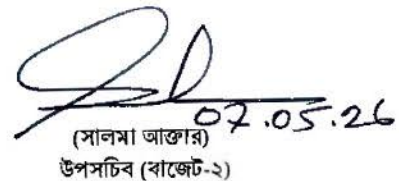 07.05.26
(সালমা আক্তার)
উপসচিব (বাজেট-২)